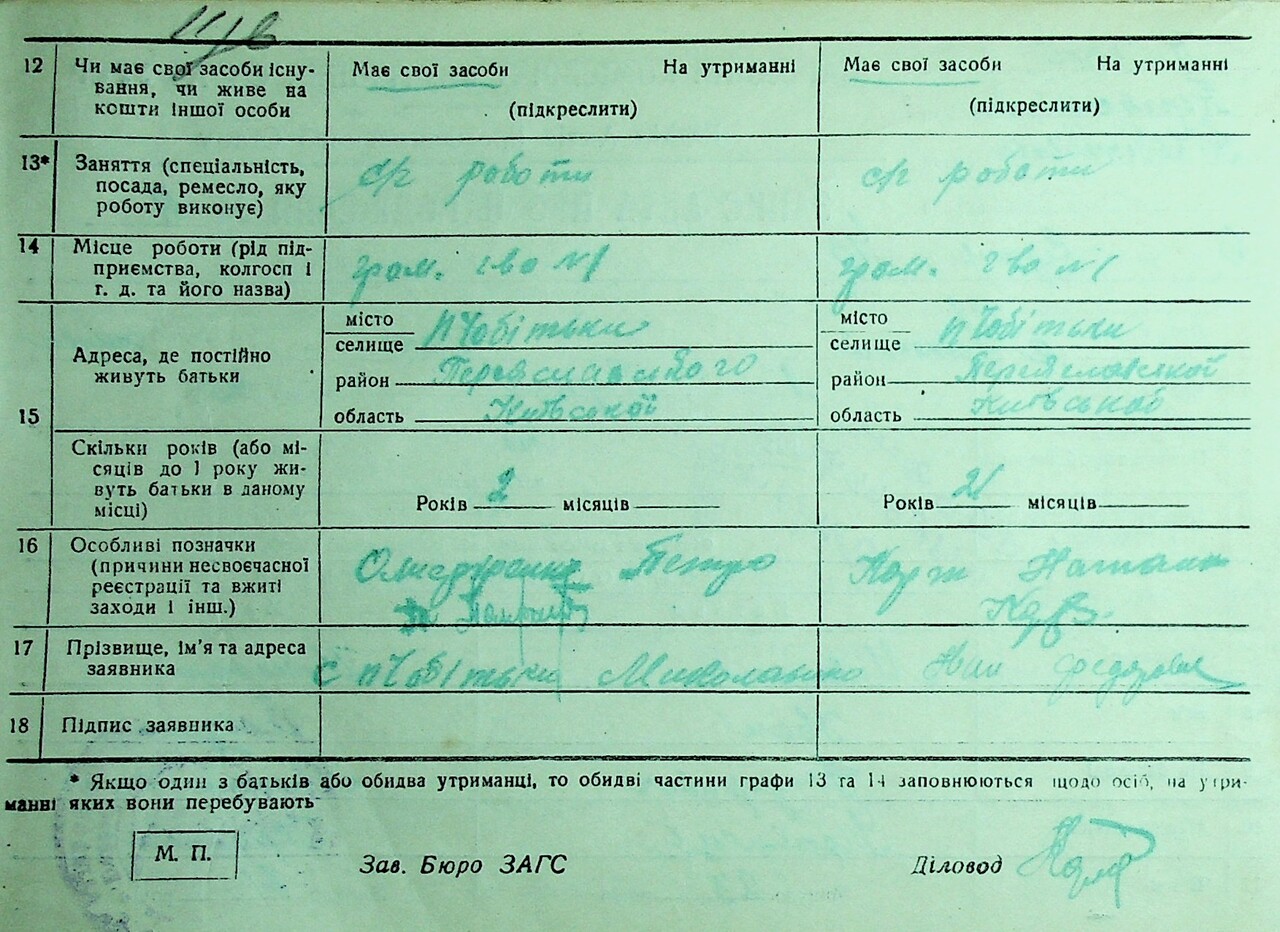 12 Чи має свої засоби існу-
вання, чи живе на
кошти іншої особи
Має свої засоби На утриманні
(підкреслити)
Має свої засоби На утриманні
(підкреслити)
13* Заняття (спеціальність,
посада, ремесло, яку
роботу виконує)
с/г роботи
с/г роботи
14 Місце роботи (рід під-
приємства, колгосп і
г. д. та його назва)
гром. г-во №1
гром. г-во №1
15
Адреса, де постійно
живуть батьки
місто
селище
район Переяславського
область Київської
місто
селище
район Переяславської
область Київської
Скільки років (або мі-
сяців до 1 року жи-
вуть батьки в даному
місці)
Років 2 місяців
Років 21 місяців
16 Особливі позначки
(причини несвоєчасної
реєстрації та вжиті
заходи і інш.)
Петро
Корж
17 Прізвище, ім'я та адреса
заявника
18 Підпис заявника
* Якщо один з батьків або обидва утриманці, то обидві частини графи 13 та 14 заповнюються щодо осіб, на утри-
манні яких вони перебувають
М. П.
Зав. Бюро ЗАГС
Діловод